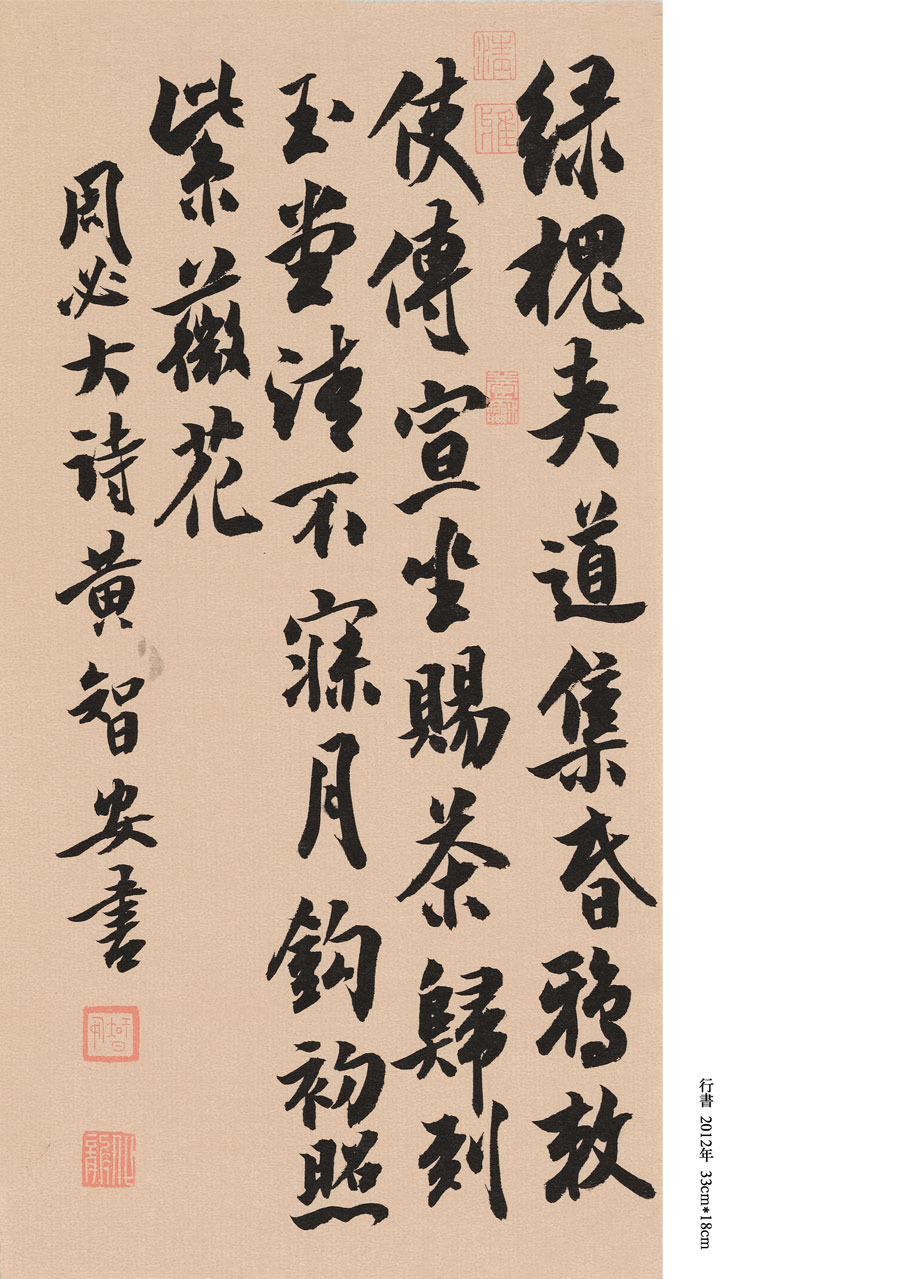 绿槐夹道集昏鸦敕
使傳宣坐賜茶歸到
玉堂清不寐月鈎初照
紫薇花
周必大诗黄智安书
行書 2012年 33cm*18cm